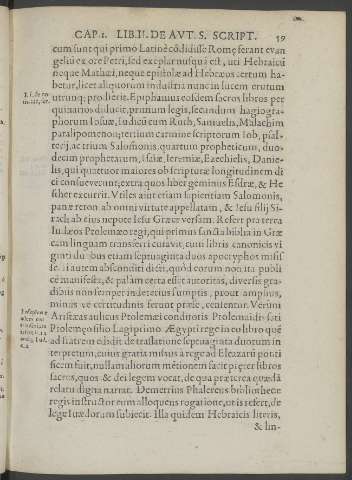 CAP. I. LIB. II. DE AVT. S. SCRIPT. 59
eum sunt qui primò Latinè cōdidisse Romę ferant evan
geliū ex ore Petri, sed exemplar nusquā est, uti Hebraicū
neque Mathæi, neque epistolæ ad Hebræos certum ha-
betur, licet aliquorum industria nunc in lucem erutum
utrunq; prodierit. Epiphanius eosdem sacros libros per
quinarios diducit, primum legis, secundum hagiogra-
phorum Iosuæ, Iudicū cum Ruth, Samuelis, Malachim
paralipomenon; tertium carmine scriptorum Iob, psal-
terij, ac trium Salomonis, quartum propheticum, duo-
decim prophetarum, Isaiæ, Ieremiæ, Ezechielis, Danie-
lis, qui quattuor maiores ob scripturæ longitudinem di
ci consueverunt; extra quos liber geminus Esdræ, & He
sther excurrit. Utiles aiut etiam sapientiam Salomonis,
panæreton ab omni virtute appellatam, & Iesu filij Si-
rach ab eius nepote Iesu Græcè versam. Refert pro terra
Iudæos Ptolemæo regi, qui primus sancta biblia in Græ
cam linguam transferri curavit, cum libris canonicis vi
ginti duobus etiam septuaginta duos apocryphos misis
se. Ii autem absconditi dicti, quòd eorum non ita publi
cè manifesta, & palàm certa esset autoritas, diversis gra-
dibus non semper indetectius sumptis, prout amplius,
minus vè certitudinis ferunt præse, censentur. Verùm
Aristæas aulicus Ptolemæi
Ptolemęo filio Lagi primo Ægypti rege in eo libro quē
ad fratrem edidit de traslatione septuaginta duorum in
terpretum, cuius gratia missus à rege ad Eleazarū ponti
ficem fuit, nullam aliorum mētionem facit pręter libros
sacros, quos & dei legem vocat, de qua præterea quædā
relatu digna narrat. Demetrius Phalereus bibliothecę
regis instructor eum alloquens rogatione, ut is refert, de
lege Iudæorum subiecit. Illa quidem Hebraicis literis,
& lin-